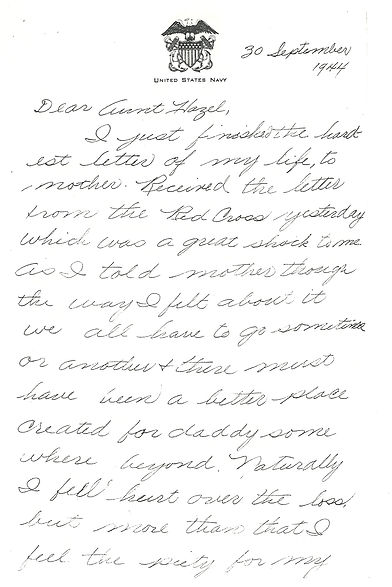 UNITED STATES NAVY
30 September
1944
Dear Aunt Hazel,
I just finished the hard
est letter of my life, to
mother. Received the letter
from the Red Cross yesterday
which was a great shock to me
As I told mother though
the way I felt about it
we all have to go sometime
or another & there must
have been a better place
created for daddy some
where beyond. Naturally
I feel hurt over the loss,
but more than that I
feel the pity for my